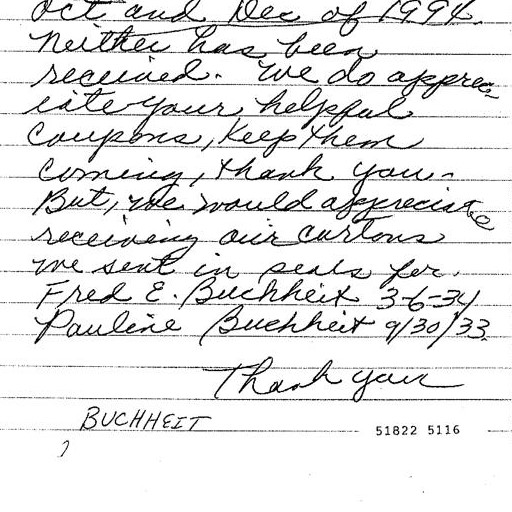 Oct and Dec of 1994.
Neither has been
received. We do apprec-
iate your helpful
coupons, keep them
coming, thank you.
But, we would appreciate
receiving our cartons
we sent in seals for.
Fred E. Buchheit 3-6-34
Pauline Buchheit 9/30/33.
Thank you
BUCHHEIT
51822 5116